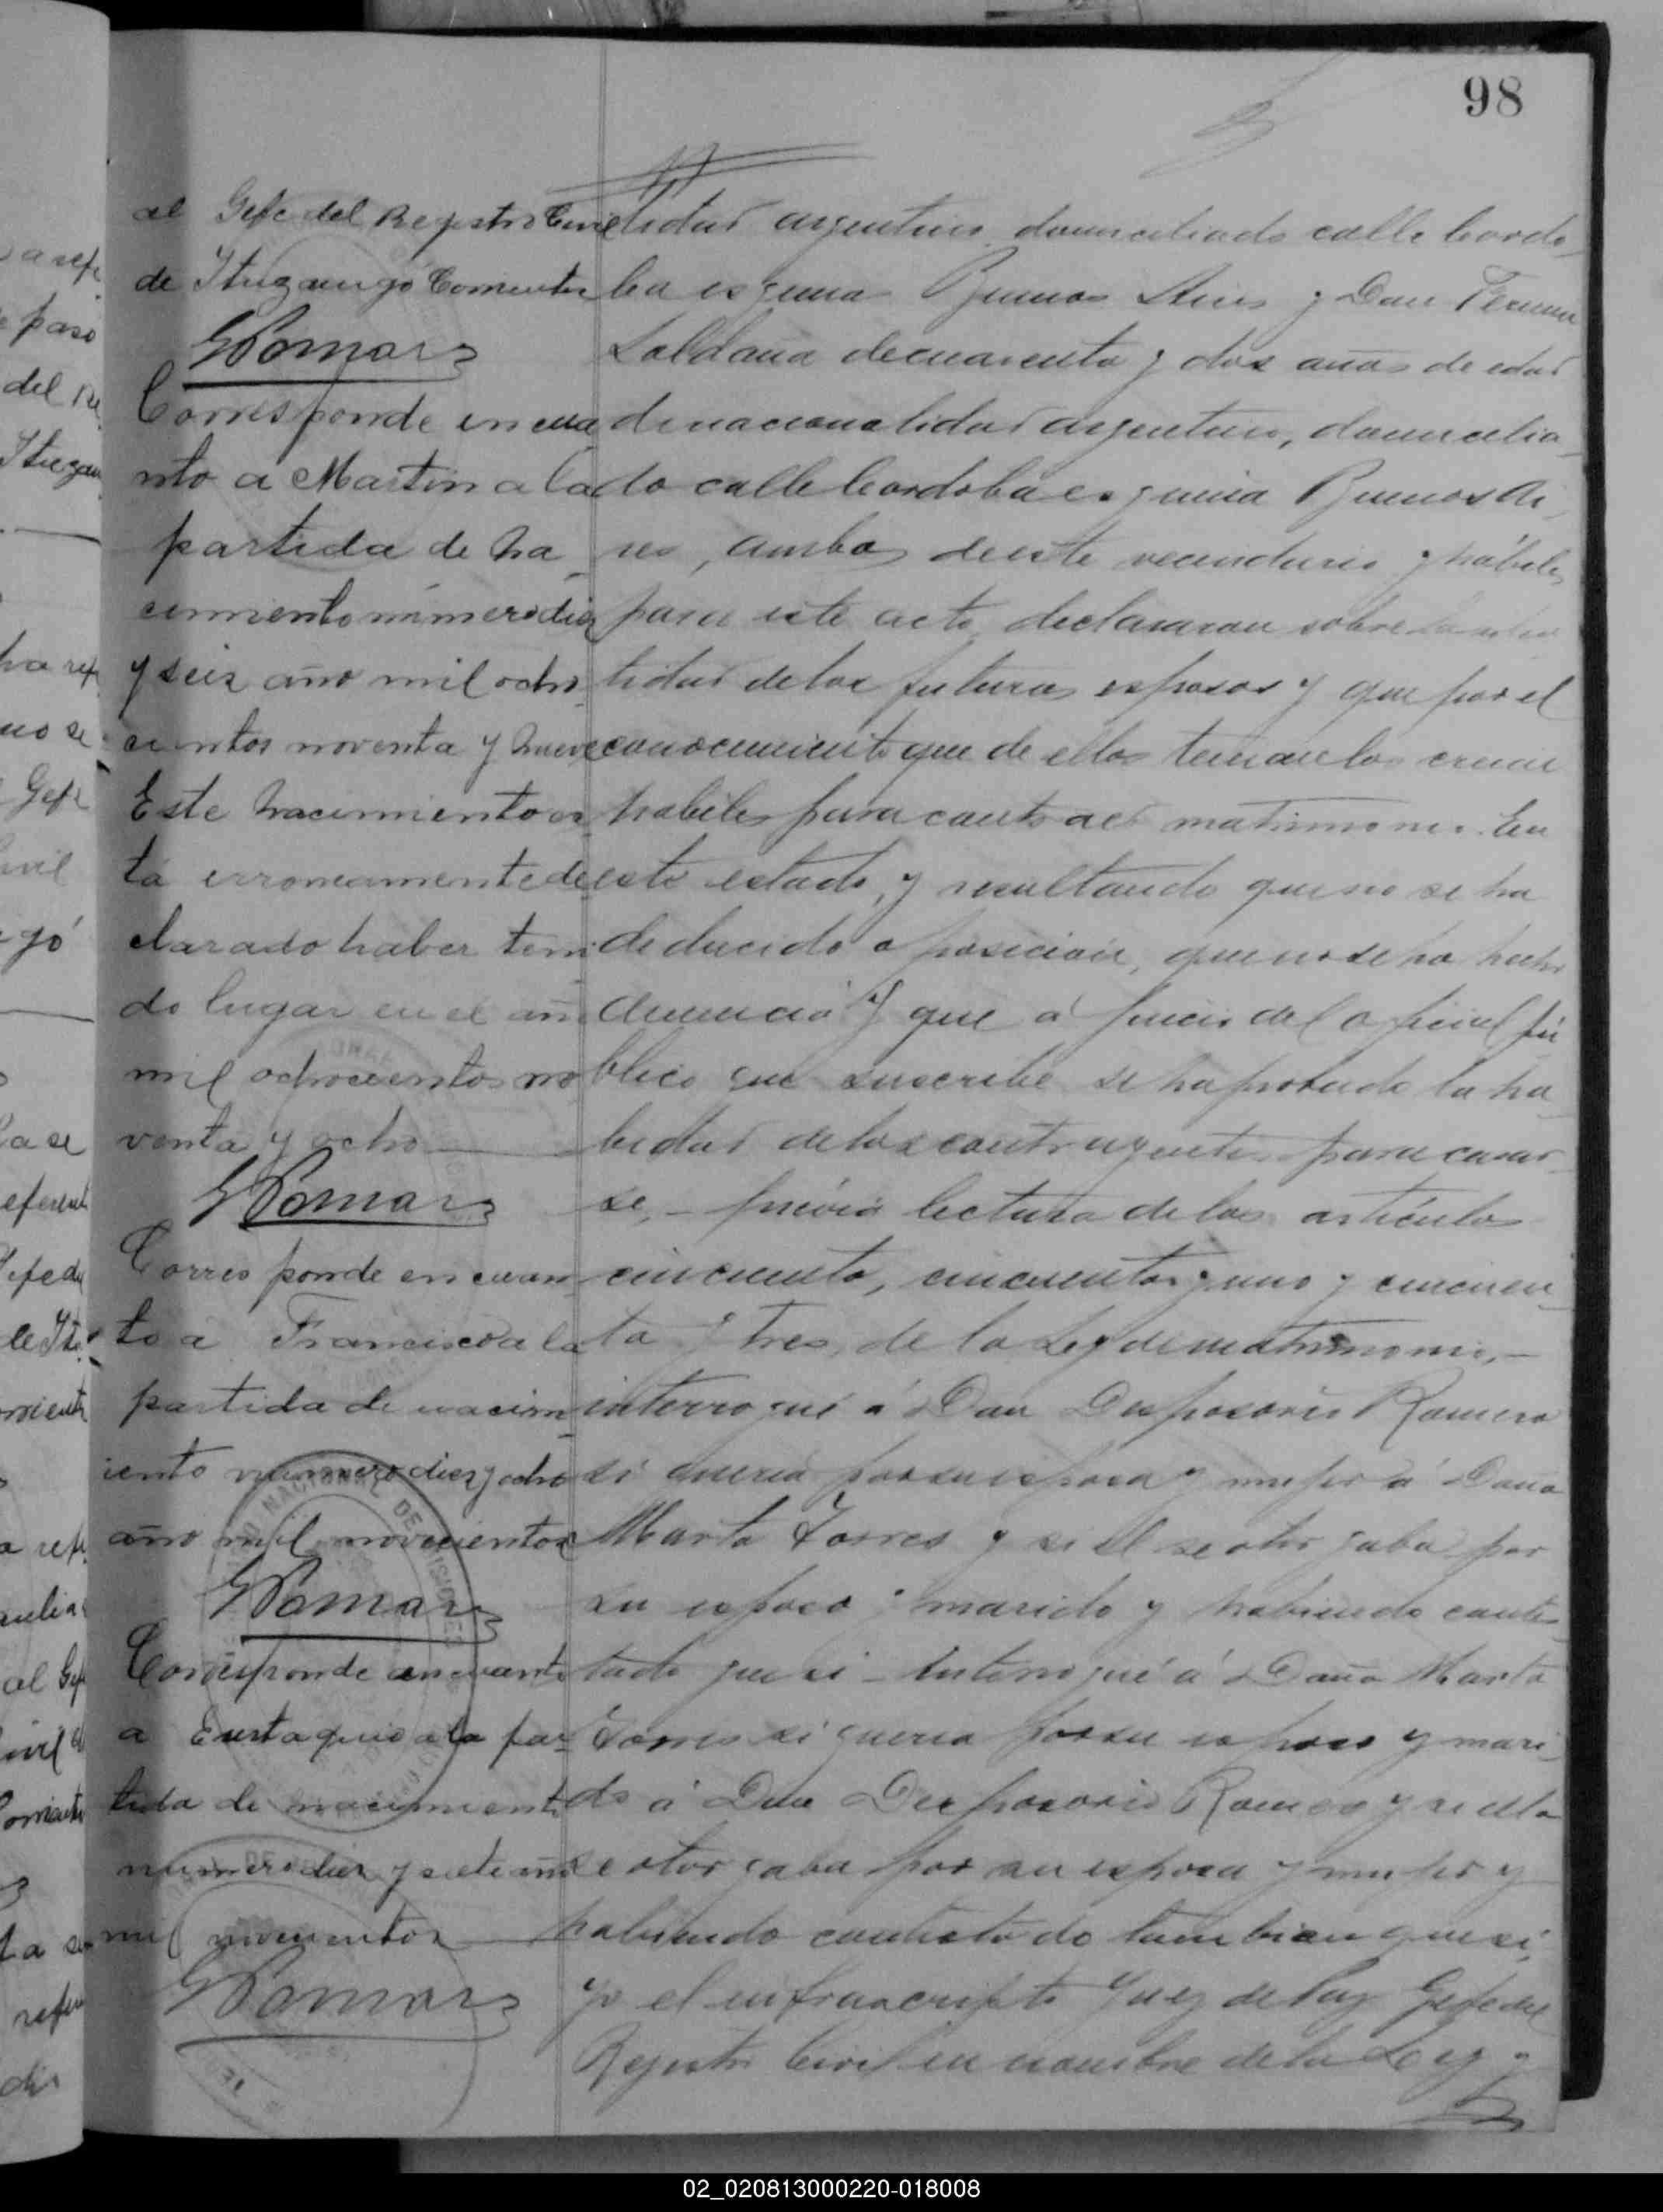 98
al Gefe del Registro Civil
de Ituzaingó Corrientes
GPomar
Corresponde en cua
nto a Martin a la
partida de na_
cimiento número diez
y seis año mil ocho_
cientos noventa y nueve
Este nacimiento es_
tá erroneamente de
clarado haber teni
do lugar en el año
mil ochocientos no
venta y ocho
GPomar
Corresponde en cuan_
to a Francisco a la
partida de nacim_
iento número diez y ocho
año mil novecientos
GPomar
Corresponde en cuanto
a Eustaquio a la par_
tida de nacimiento
número diez y siete año
mil novecientos
GPomar
lidad argentino, domiciliado calle Cordo_
ba esquina Buenos Aires y Don
Saldaña de cuarenta y dos años de edad
de nacionalidad argentino, domicilia_
do calle Cordoba esquina Buenos Ai_
res, ambos de este vecindario y hábiles
para este acto, declararon sobre la iden
tidad de los futuros esposos y que por el
conocimiento que de ellos tenian los creian
habiles para contraer matrimonio. En
este estado, y resultando que no se ha
deducido oposicion, que no se ha hecho
denuncia y que á juicio del oficial pú_
blico que suscribe se ha probado la ha_
bilidad de los contrayentes para casar_
se, - prévia lectura de los artículos
cincuenta, cincuenta y uno y cincuen_
ta y tres, de la Ley de matrimonio, -
interrogué á Don Desposorio Romero
si queria por su esposa y mujer á Doña
Marta Torres y si él se otorgaba por
su esposo y marido y habiendo contes_
tado que si - interrogué á Doña Marta
Torres si queria por su esposo y mari_
do á Don Desposorio Romero y si ella
se otorgaba por su esposa y mujer y
habiendo contestado tambien que si,
yo el infrascripto Juez de Paz Gefe del
Registro Civil en nombre de la Ley y
02_020813000220-018008